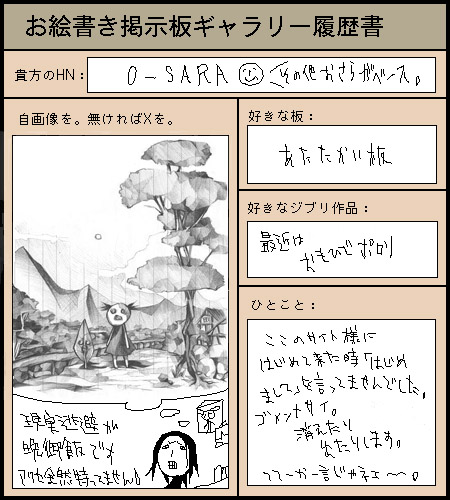 お絵書き掲示板ギャラリー履歴書
貴方のHN：
O-SARA
その他おさらがベース。
自画像を。無ければXを。
現実逃避が
晩御飯です
好きな板：
あたたかい板
好きなジブリ作品：
最近は
おもひでぽろり
ひとこと：
ここのサイト様に
はじめて来た時「はじめ
まして」を言ってませんでした。
ゴメンナサイ。
消えたり
出たりします。
ってーか一言じゃネェ〜。